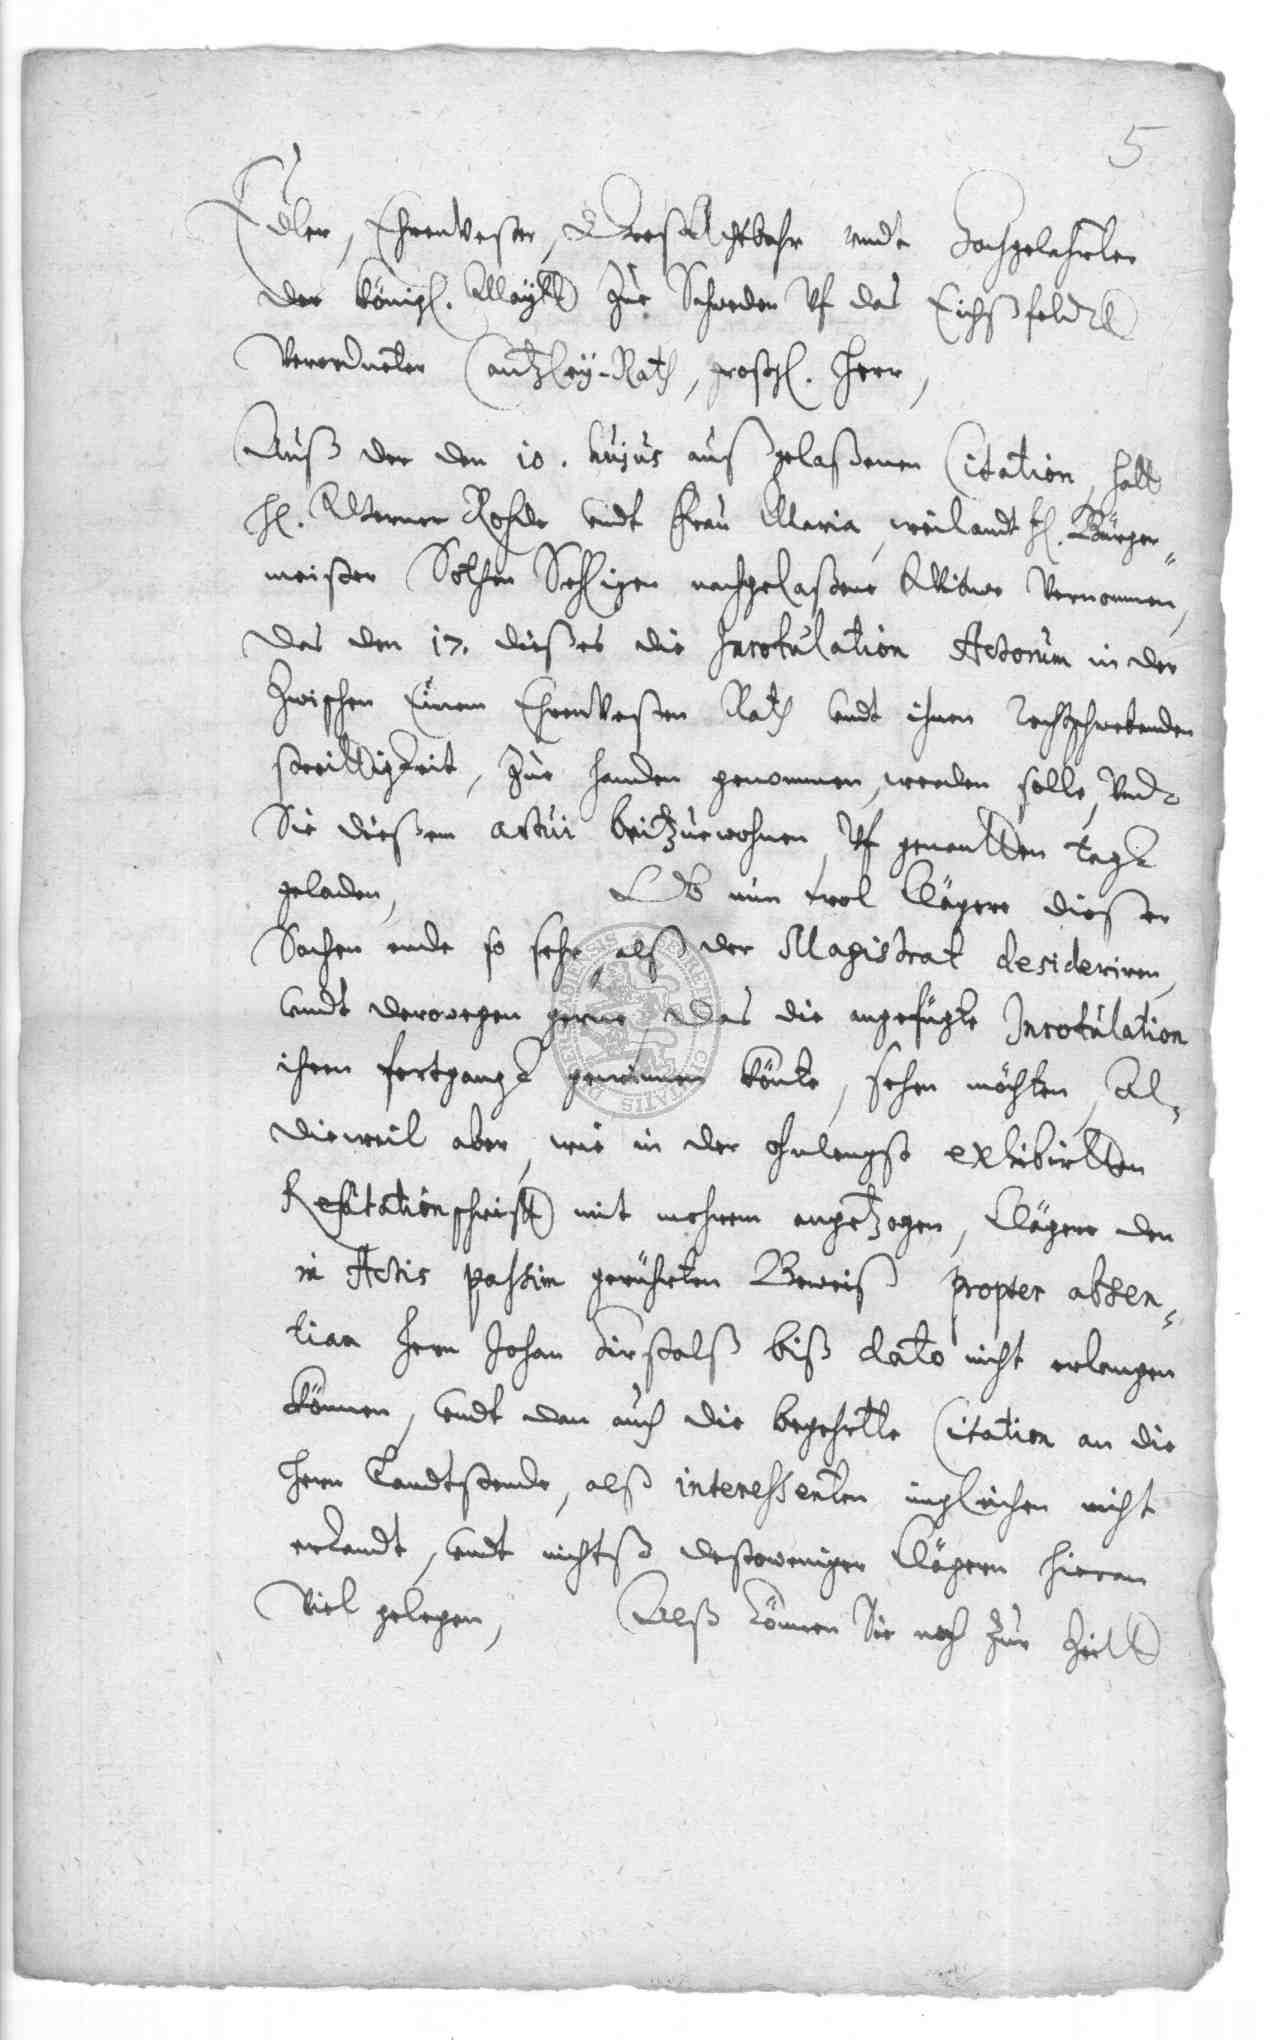 5
Edler, Ehrenvester, Großachtbahr undt Hochgelahrter
der Königl. Maytt zue Schweden Uf das Eichßfeldt
Verordneter Cantzley-Rath, großgl. Herr,
Auß der den 10. hujus außgelaßenen Citation, hatt
H. Werner Rohde undt Frau Maria, weilandt H. Bürger"
meister Söthen Sehligen nachgelaßene Witwe vernommen,
das den 17. dießes die Inrotulation Actorum in der
Zwischen Einem Ehrenvesten Rath undt ihnen rechtschwebenden
streittigkeit, Zue handen genommen, werden solle, Undt
Sie dießem actui beitzuewohnen, Uf genantten tagk
geladen, Ob nun wol Clägere dießer
Sachen ende so sehr, alß der Magistrat desideriren,
undt derowegen gerne, das die angefügte Inrotulation
ihren fortgangk gewinnen könte, sehen möchten, Al"
dieweil aber, wie in der ohnlengst exhibirtten
Refutationschrift mit mehrem angetzogen, Clägere den
in Actis passim gerührten Beweiß propter absen"
tiam Herrn Johan biß dato nicht erlangen
können, undt dan auch die begehrtte Citation an die
Herrn Landtstende, alß interessenten ingleichen nicht
erkandt, undt nichtß destoweniger Clägern hieran
Viel gelegen, Alß können Sie noch zur Zeitt